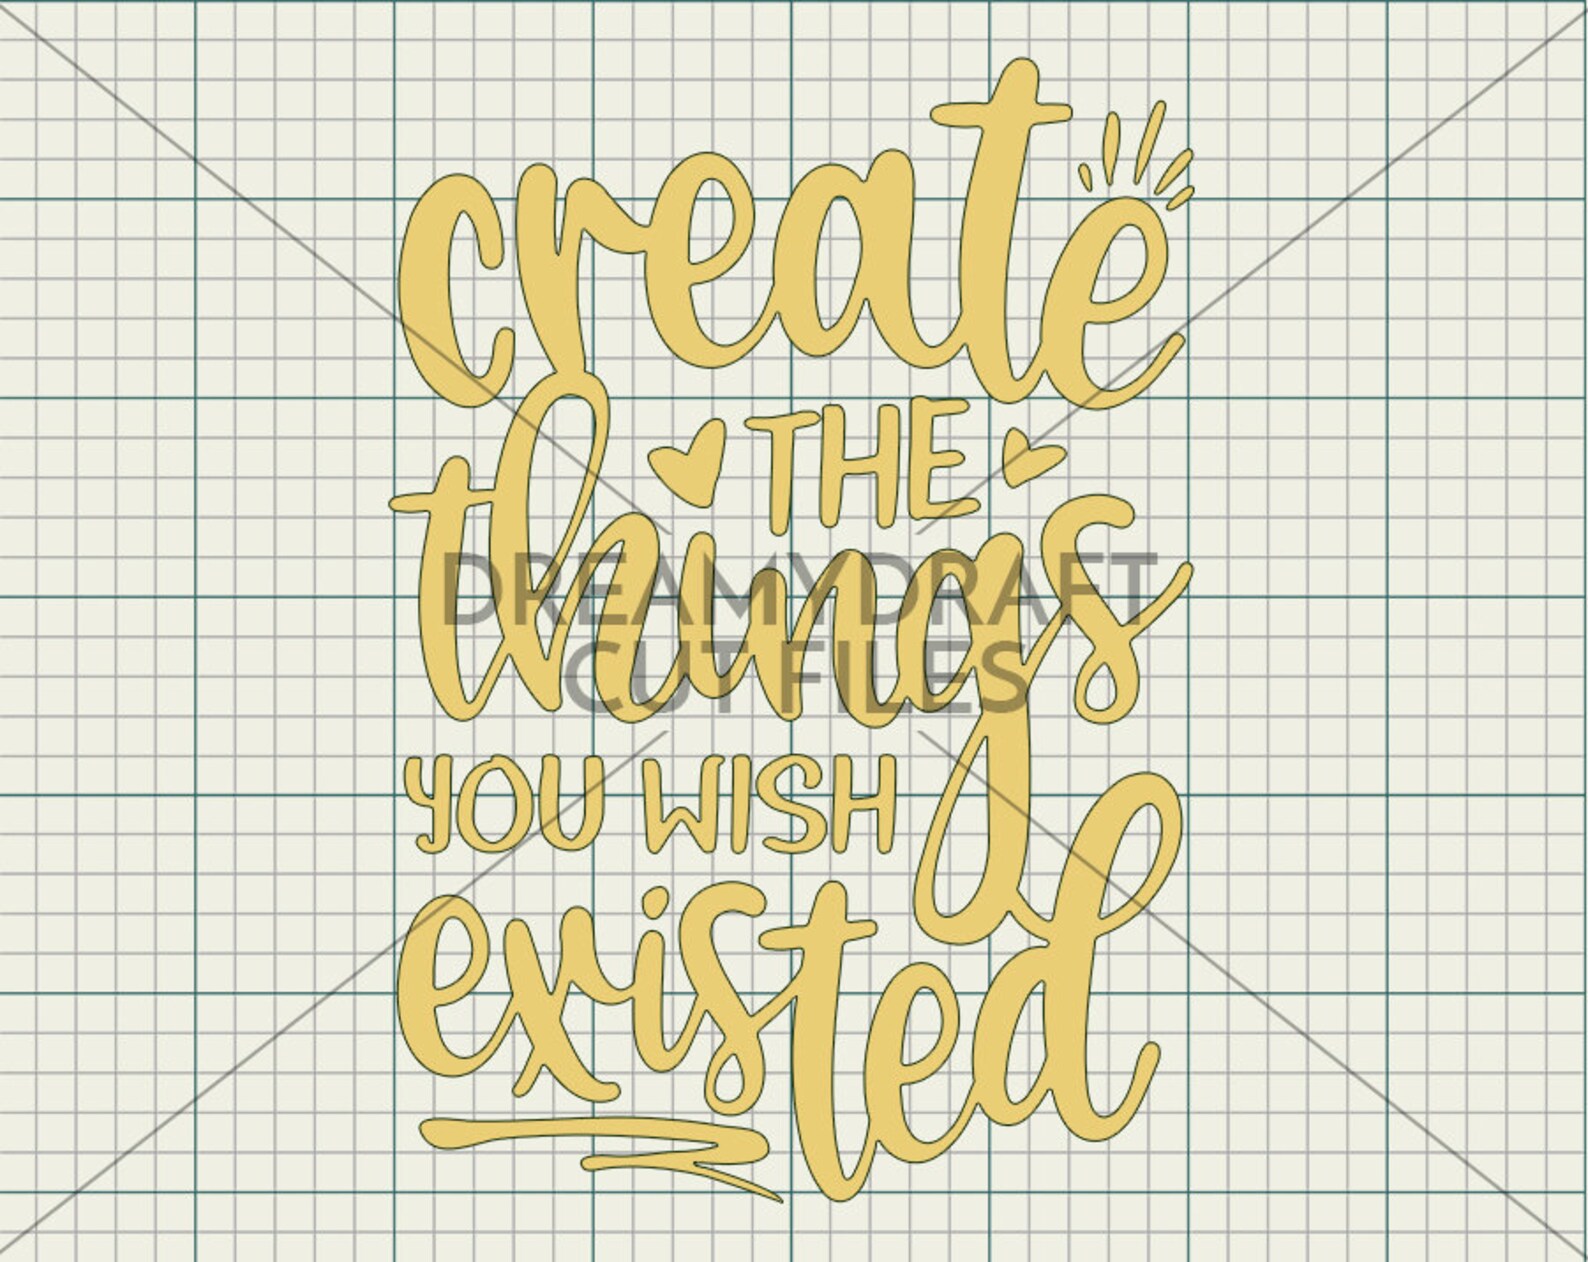 create
THE
things
DREAMYDRAFT
CUT FILES
YOU WISH
existed